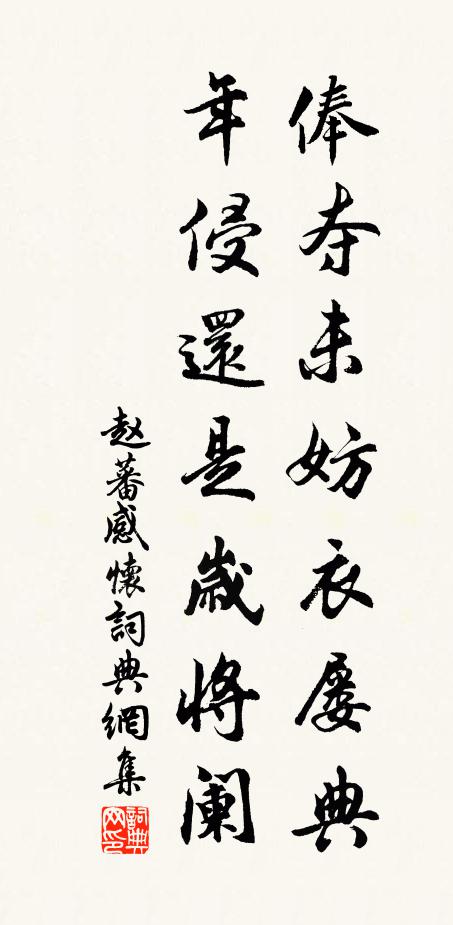 俸夺未妨衣屡典
年侵還是歲将阑
赵蕃感懷詞典網集
詞典网印